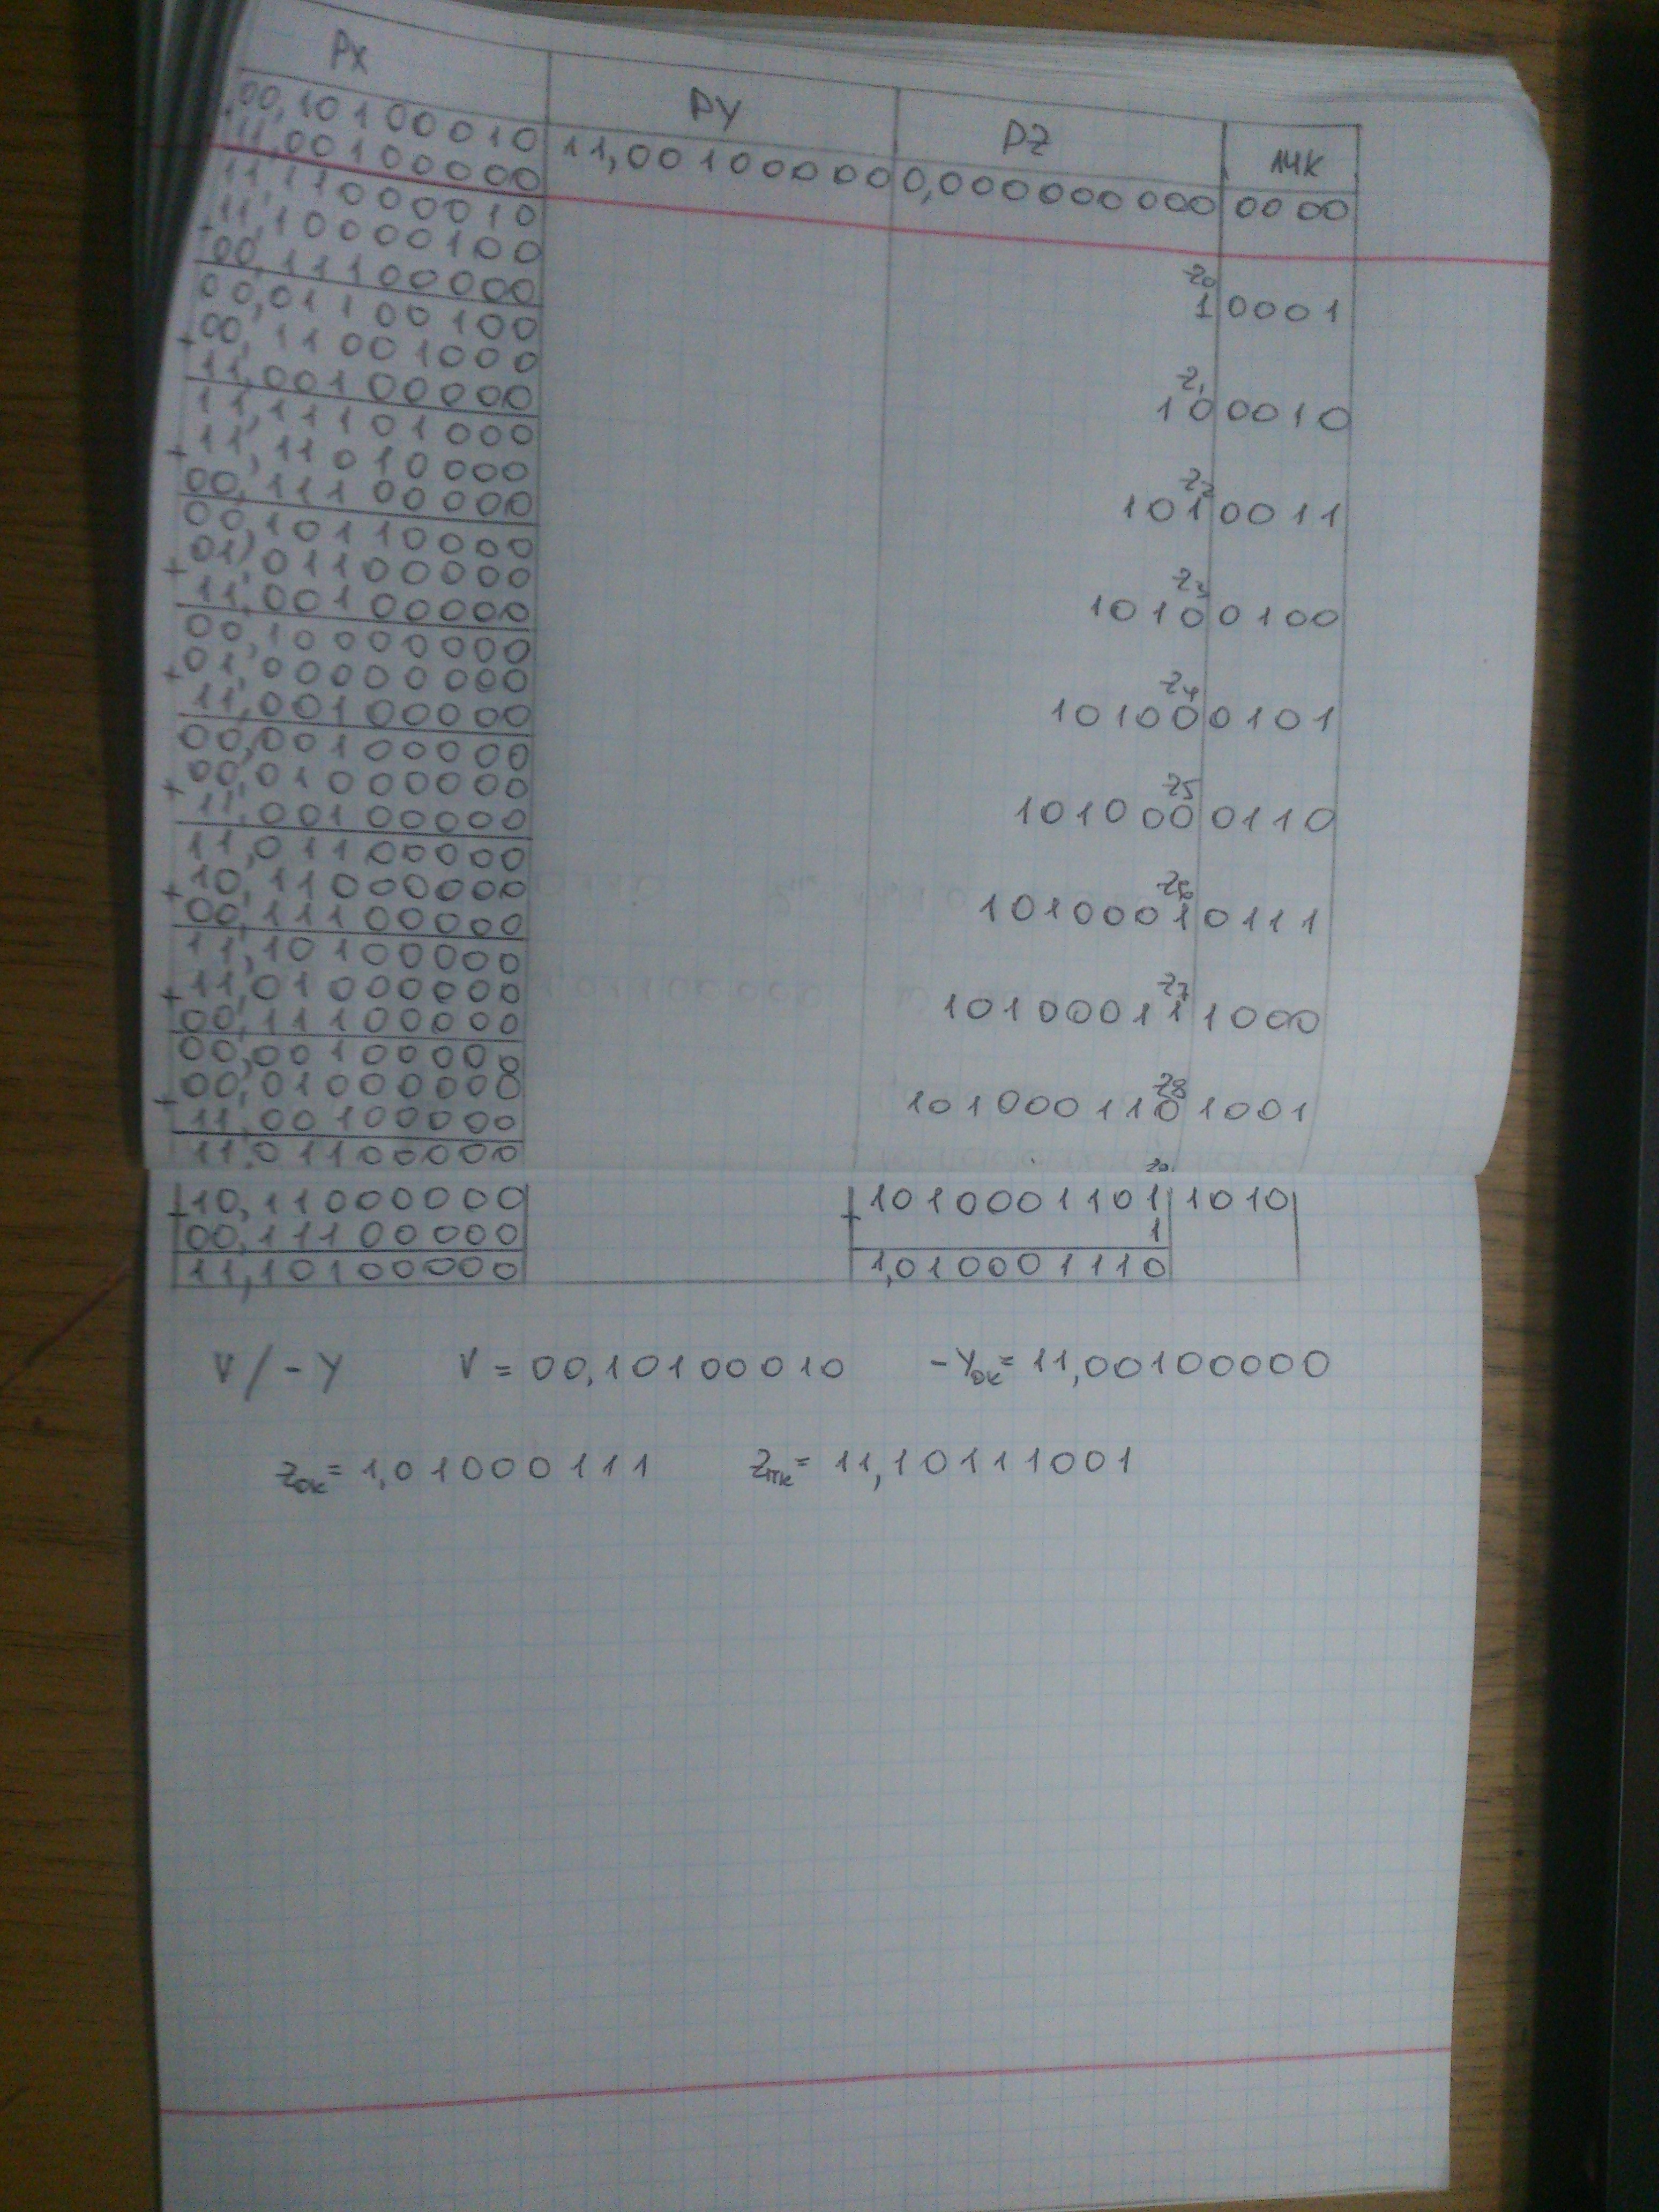 РХ РУ РZ ЛЧК
00,10100010 11,00100000 0,000000000 0000
11,00100000
11,11000010
11,10000100
00,11100000 z0
00,01100100 1 0001
+00,11001000
11,00100000 z1
11,11101000 10 0010
+11,11010000
00,11100000 z2
00,10110000 101 0011
+01,01100000
11,00100000 z3
00,10000000 1010 0100
+01,00000000
11,00100000 z4
00,00100000 10100 0101
+00,01000000
11,00100000 z5
11,01100000 101000 0110
+10,11000000
00,11100000 z6
11,10100000 1010001 0111
+11,01000000
00,11100000 z7
00,00100000 10100011 1000
+00,01000000
11,00100000 z8
11,01100000 101000110 1001
+10,11000000 +1010001101 1010
00,11100000 1
11,10100000 1,010001110
V/-Y V = 00,10100010 -Yок= 11,00100000
zок= 1,01000111 zпк= 11,10111001